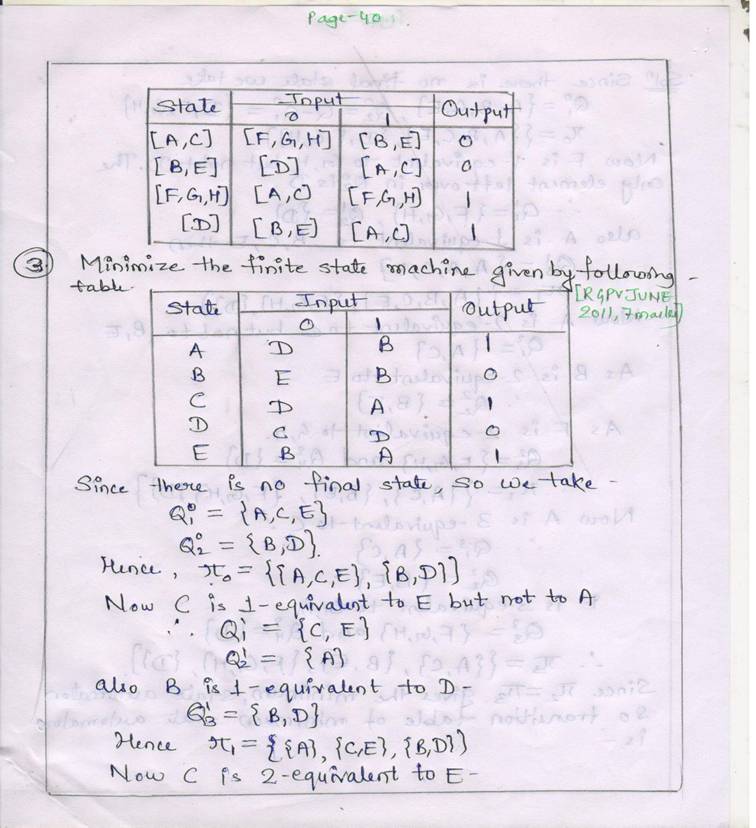 Page-40.
State Input Output
0 1
[A,C] [F,G,H] [B,E] 0
[B,E] [D] [A,C] 0
[F,G,H] [A,C] [F,G,H] 1
[D] [B,E] [A,C] 1
③ Minimize the finite state machine given by following -
table.
[RGPV JUNE
2011, 7 marks]
State Input Output
0 1
A D B 1
B E B 0
C D A 1
D C D 0
E B A 1
Since there is no final state, so we take -
Q₁⁰ = {A,C,E}
Q₂⁰ = {B,D}.
Hence, π₀ = {{A,C,E}, {B,D}}
Now C is 1-equivalent to E but not to A
∴ Q₁¹ = {C, E}
Q₂¹ = {A}
also B is 1-equivalent to D
Q₃¹ = {B,D}
Hence π₁ = {{A}, {C,E}, {B,D}}
Now C is 2-equivalent to E-